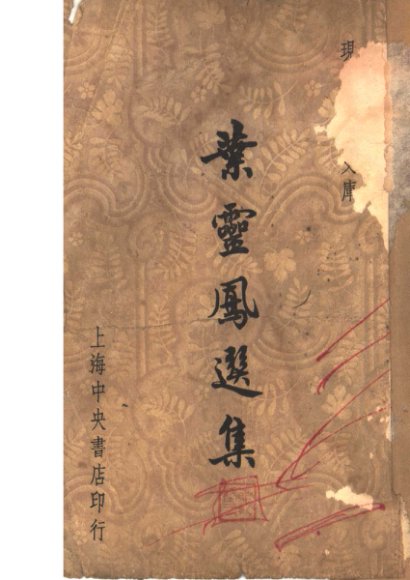 現
入庫
葉靈鳳選集
上海中央書店印行